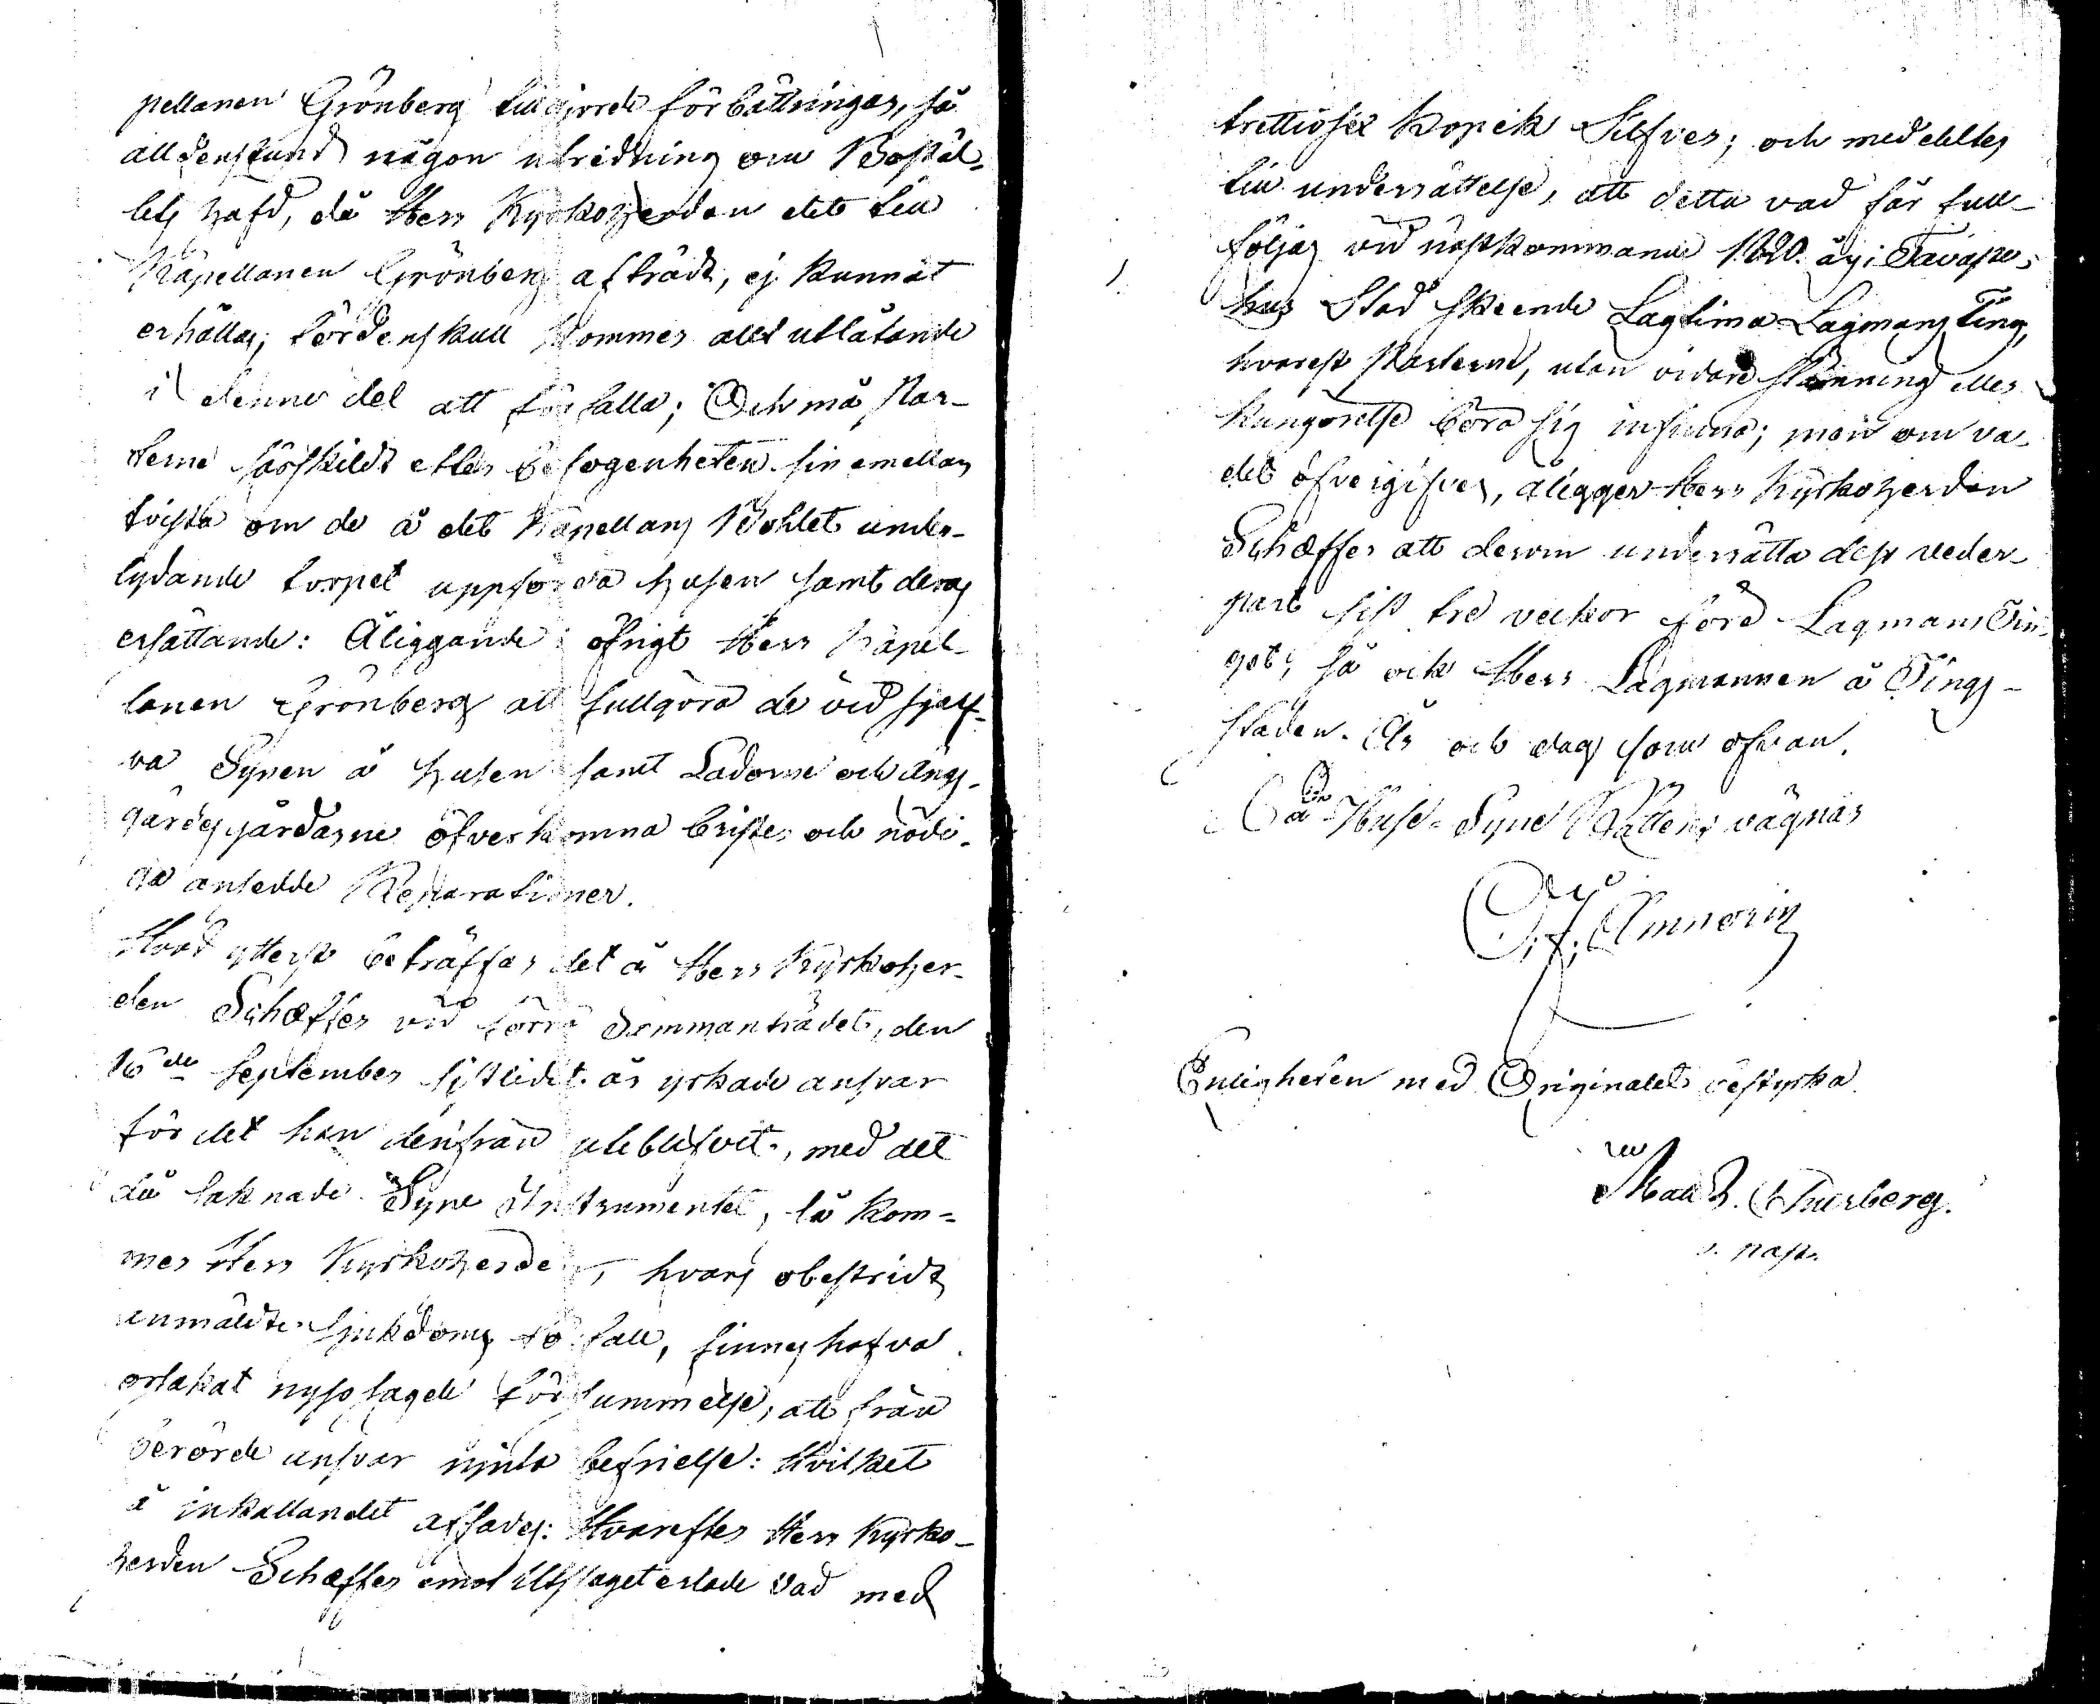 pellanen Grönberg tillgjorde förbättringar, så
alldenstund någon utredning om Bostäl-
lets häfd, då Herr Kyrkoherden det till
Kapellanen Grönberg afträdt, ej kunnat
erhållas; fördenskull kommer allt utlåtande
i denne del att förfalla; Och må Par-
terne särskildt efter befogenheten sin emellan
tvista om de å det Kapellans Bohlet under-
lydande torpet uppförda husen samt deras
ersättande: Åliggande i öfrigt Herr Kapel-
lanen Grönberg att fullgöra de vid sjelf-
va Synen å husen samt Ladorne och ängs-
gärdesgårdarne öfverkomna brister och nödi-
ga ansedde Reparationer.
Hvad ytterst beträffar det å Herr Kyrkoher-
den Schæffer vid förra Sammanträdet, den
16de September sistledit år yrkade ansvar
för det han derifrån uteblifvit, med det
då saknade Syne Instrumentet, så kom-
mer Herr Kyrkoherden, hvars obestridt
anmäldte sjukdoms förfall, finnes hafva
orsakat nyssagde försummelse, att från
berörde ansvar njuta befrielse: Hvilket
å inkallandet afsades: Hvarefter Herr Kyrko-
herden Schæffer emot Utslaget erlade vad med
trettiosex Kopek Silfver; och meddeltes
till underrättelse, att detta vad får full-
följas vid nästkommande 1820 års i Tavaste-
hus Stad skeende Lagtima Lagmans Ting,
hvarest Parterne, utan vidare stämning eller
kungörelse böra sig infinna; men om va-
det öfvergifves, åligger Herr Kyrkoherden
Schæffer att derom underrätta dess veder-
part sist tre veckor före Lagmans Tin-
get, så ock Herr Lagmannen å Tings-
staden. År och dag som ofvan.
På Huse-Syne Rättens vägnar
Amnorin
Enligheten med Originalet bestyrka
Thurberg.